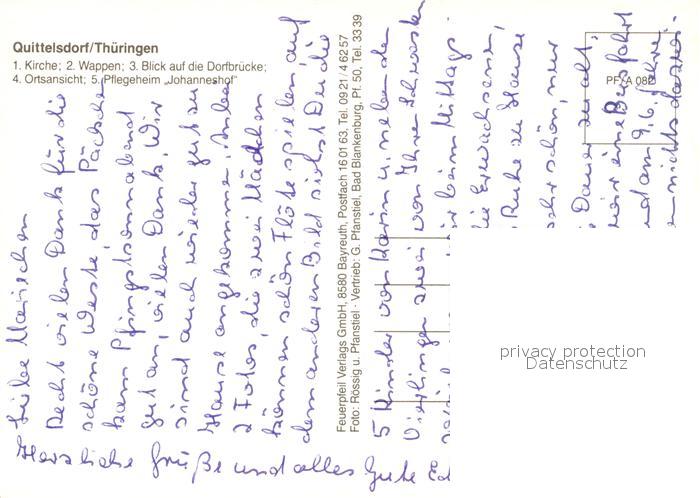 Quittelsdorf/Thüringen
1. Kirche; 2. Wappen; 3. Blick auf die Dorfbrücke;
4. Ortsansicht; 5. Pflegeheim „Johanneshof"
PF-A 082
Feuerpfeil Verlags GmbH, 8580 Bayreuth, Postfach 16 01 63, Tel. 09 21 / 4 62 57
Foto: Rössig u. Pfanstiel · Vertrieb: G. Pfanstiel, Bad Blankenburg, Pf. 50, Tel. 33 39
Liebe
Recht vielen Dank für die
schöne Weste, das Päckchen
kam Pfingstsonnabend
gut an, vielen Dank. Wir
sind auch wieder gut zu
Hause angekommen. Anbei
2 Fotos, die zwei Mädchen
können schön Flöte spielen, auf
dem anderen Bild siehst Du die
5 Kinder von Karin u. neben den
Vierlingen zwei von Ihren Schwestern
beim Mittags-
die Erwachsenen,
Ruhe zu Hause
sehr schön, nur
Dauer zu alt,
wir eine Busfahrt
und am 9.6. fahre
nichts
Herzliche Grüße und alles Gute
privacy protection
Datenschutz